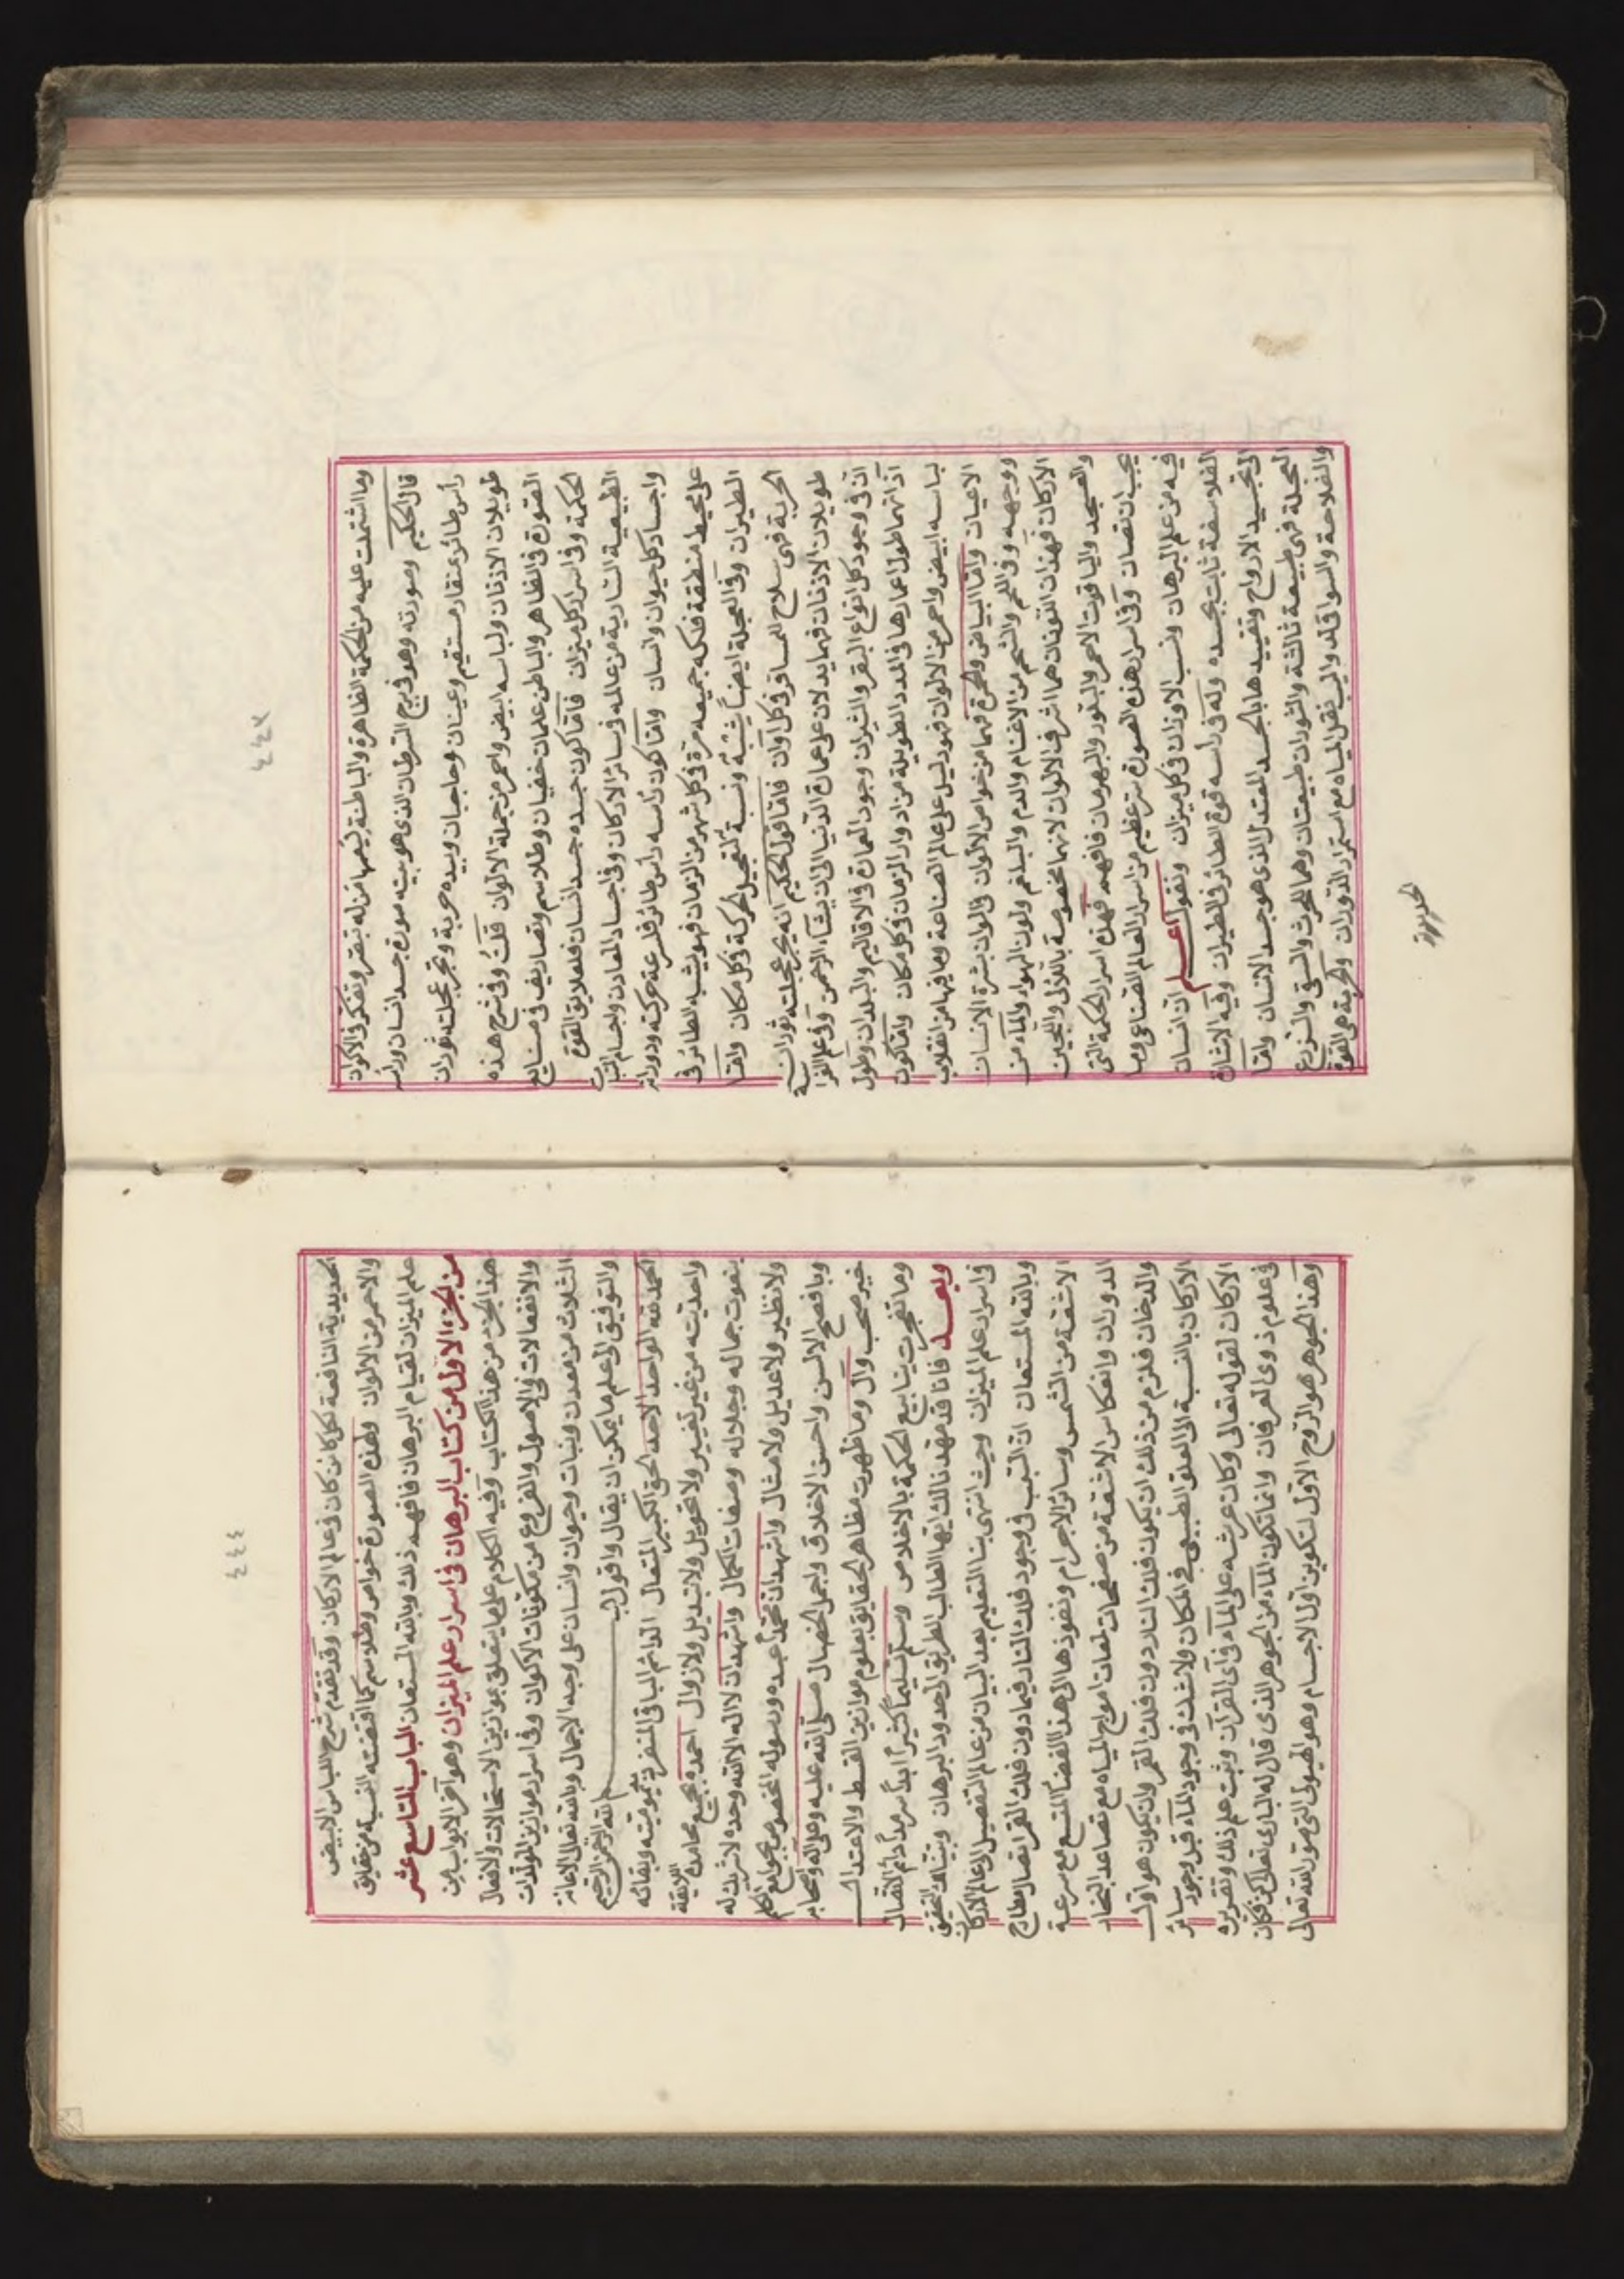 ٤٤٣
وما اشتملت عليه من الحكمة الظاهرة والباطنة يفهمها من له تبصر وتفكر في الاكوان
قال الحكيم وصورته وهو في برج السرطان الذي هو بيته صورة جسد انسان وراسه
رأس طائر بمنقار مستقيم وعينان وحاجبان وبيده حربة وتجر عجلته ثوران
طويلان الاذنان ولباسه ابيض واحمر من جملة الالوان قلت وفي شرح هذه
الصورة في الظاهر والباطن علمان خفيان وطلاسم وتصاريف في صنايع
الحكمة وفي اسرار كل ميزان فاما كون جسده جسد انسان فلعلايق القوة
الطبيعية السارية من عالمه في سائر الاركان وفي اجساد المعادن واجسام النبات
واجساد كل حيوان وانسان واما كون رأسه رأس طائر فلسرعة حركته ودورانه
على محيط منطقة فلكه جميعه مرة في كل شهر من الزمان فهو يشبه الطائر في
الطيران وفي العجلة ايضا يشبه ونسبة لتعجيل الحركة في كل مكان واما
الحربة فهي سلاح للمسافر في كل اوان فاما قول الحكيم انه يجر عجلته ثوران
طويلان الاذنان فهما يدلان على عمارة الدنيا الى ان يشاء الرحمن وفي علم الفراسة
ان في وجود كل انواع البقر والثيران وجود العمارة في الاقاليم والبلدان وطول
آذانهما طول اعمارها في المدد الطويلة من ادوار الزمان في كل مكان واما كون
لباسه ابيض واحمر من الالوان فهو دليل على عالم الصناعة وما فيها من انقلاب
الاعيان واما البياض والحمرة فهما من خواص الالوان في الوان بشرة الانسان
ووجهه وفي اللحم والشحم من الاغنام والدم والبلغم ولون الهواء والمآء من
الاركان فهذان اللونان هما اشرف الالوان لانهما مخصوصة باللآلى واللجين
والعسجد والياقوت الاحمر والبلور والبهرمان فافهم فهذه اسرار الحكمة التي
يجب ان تصان وفي اسرار هذه الصورة سر عظيم من اسرار العالم الصناعي وما
فيه من علم البرهان ونسب الاوزان في كل ميزان ونقول اعلم ان انسان
الفلاسفة ثابت بجسده وله في رأسه قوة الطائر في الطيران وفيه الاشارة
الى تجسيد الارواح وتقييدها بالجسد المعتدل الذي هو جسد الانسان واما
العجلة فهي طبيعة ثالثة والثوران طبيعتان وهما للحرث والسقي والزرع
والفلاحة والسواقي لدواليب نقل المياه مع استمرار الدوران والحربة هي القوة
الحديدية
٤٤٤
الحديدية النافعة لكل كائن كان في عالم الاركان وقد تقدم شرح اللباس الابيض
والاحمر من الالوان ولهذه الصورة خواص وطلاسم كما اقتضته النسبة من حقايق
علم الميزان لقيام البرهان فافهم ذلك وبالله المستعان الباب التاسع عشر
من الجزء الاول من كتاب البرهان في اسرار علم الميزان وهو آخر الابواب من
هذا الجزء من هذا الكتاب وفيه الكلام على ما يتعلق بموازين الاستحالات والافعال
والانفعالات في الاصول والفروع من مكونات الاكوان وفي اسرار موازين المولدات
الثلاث من معدن ونبات وحيوان وانسان على وجه الاجمال وبالله تعالى الاعانة
والتوفيق الى علم ما يمكن ان يقال واقول بسم الله الرحمن الرحيم
الحمد لله الواحد الاحد الحق الكبير المتعال الدائم الباقي المنفرد في ديموميته وبقائه
واحديته من غير تغيير ولا تحويل ولا تبديل ولا زوال احمده بجميع محامده اللايقة
بنعوت جماله وجلاله وصفات الكمال واشهد ان لا اله الا الله وحده لا شريك له
ولا نظير ولا عديل ولا مثال واشهد ان محمدا عبده ورسوله المخصوص بجوامع الكلم
وبافصح الالسن واحسن الاخلاق واجمل الخصال صلى الله عليه وعلى اله واصحابه
خير صحب وآل وما ظهرت مظاهر الحقايق بعلوم موازين القسط والاعتدال
وما تفجرت ينابيع الحكمة بالاخلاص وسلم تسليما كثيرا ابدا سرمدا دائم الاتصال
وبعد فانا قد مهدنا لك ايها الطالب الطريق الى حدود البرهان وبينا لك التحقيق
في اسرار علم الميزان وحيث انتهى بنا التعليم بعد البيان من عالم التفصيل الى عالم الاركان
وبالله المستعان ان السبب في وجود فلك النار فيما دون فلك القمر اتصال مطارح
الاشعة من الشمس وسائر الاجرام ونفوذها الى هذا الفضا المتسع مع سرعة
الدوران وانعكاس الاشعة من صفحات لمعات امواج المياه مع تصاعد البخار
والدخان فلزم من ذلك ان يكون فلك النار دون فلك القمر وان يكون هو اول
الاركان بالنسبة الى العلو الطبيعي في المكان ولا شك في وجود المآء قبل وجود سائر
الاركان لقوله تعالى وكان عرشه على المآء في آي القرآن وثبت علم ذلك وتقريره
في علوم ذوي العرفان وانما تكون المآء من الجوهر الذي قال له الباري تعالى كن فكان
وهذا الجوهر هو الروح الاول لتكوين اول الاجسام وهو الهيولى التي صور الله تعالى